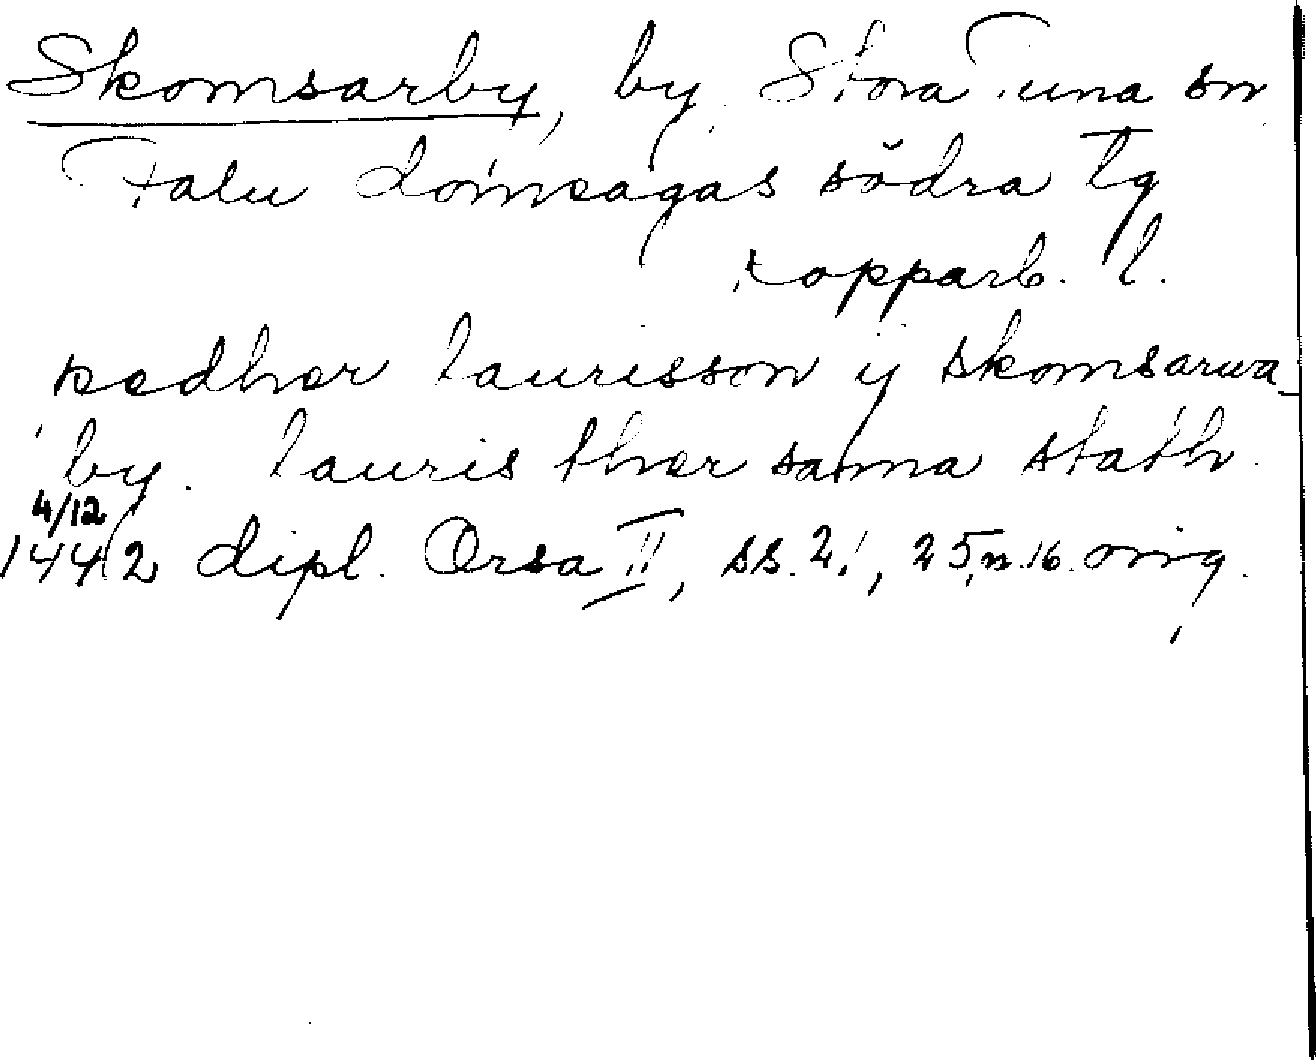 Skomsarby, by, Stora Tuna sn
Falu domsagas södra tg
Kopparb. l.
pedher laurisson ij skomsarwa
by. lauris ther sama stath.
4/12
1442 dipl. Orsa II, ss. 21, 25, n. 16. orig.